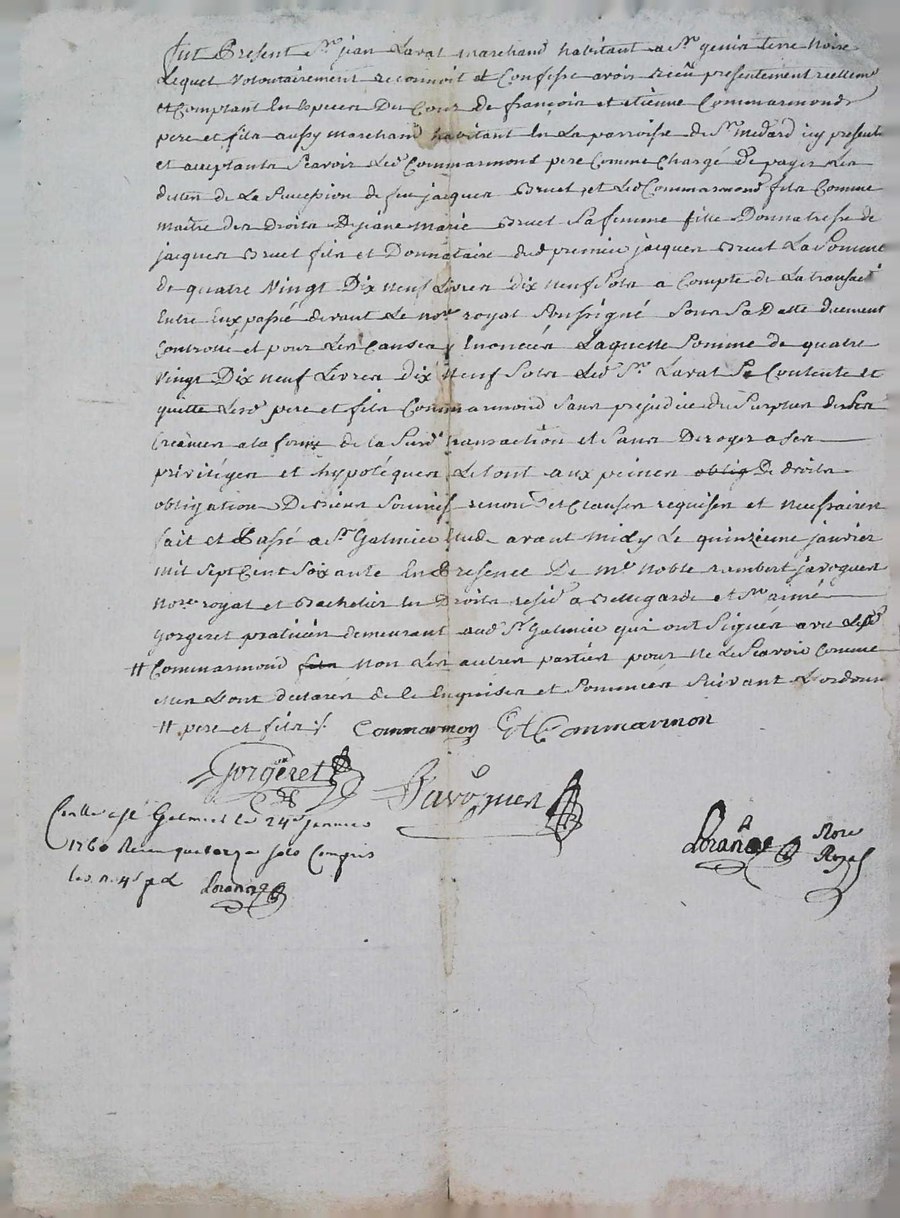 Fut Present Sr jean Laval marchand habitant a St genis terre noire
Lequel volontairement reconnoit et Confesse avoir reçeu presentement reellemt
et Comptant En Especes De Cour de françois et etienne Commarmond
pere et fils aussy marchand habitant En La parroisse de St medard icy presents
et acceptants Scavoir Led Commarmond pere Comme Chargé de payer Les
dettes de La Succession de feu jacques Bruel et Led Commarmond fils Comme
maitre des Droits De jeane Marie Bruel Sa femme fille Donnatresse de
jacques Bruel fils et Donnataire dud premier jacques Bruel La Somme
de quatre Vingt Dix neuf Livres dix neuf Sols a Compte de La transact
Entre Eux passé devant Le nore royal Soussigné Sous Sa Datte duement
Controllé et pour Les Causes y Enoncées Laquelle Somme de quatre
Vingt Dix neuf Livres dix neuf Sols Led Sr Laval Se Contente et
quitte Lesd pere et fils Commarmond Sans prejudice du Surplus de Ses
Creances a la forme de la Susd transaction et Sans Deroger a Ses
privileges et hypoteques Le tout aux peines oblig De droits
obligation De biens Soumis renon et Clauses requises et necessaires
fait et Passé a St Galmier Etude avant midy Le quinzieme janvier
mil Sept Cent Soixante En Presence De me Noble rambert javoguer
nore royal et Bachelier En Droits resid a Bellegarde et Sr aimé
Gorgeret praticien demeurant aud St Galmier qui ont Signés avec Lesd
# Commarmond fils non Les autres parties pour ne Le Scavoir Comme
Elles L'ont declarés de Ce Enquises et Sommées Suivant L'ordonn
# pere et fils /. Commarmon Et Commarmon
Gorgeret Javoguer
Conlle a St Galmier Le 24e janvier
1760 Reçu quatorze sols Compris
Les n. 4s p d Lorange
Lorange Nore Royal